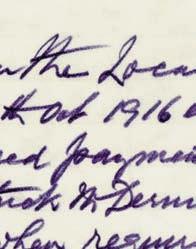 the Loca
th Oct 1916
ed paymen
trick McDerm
when requi